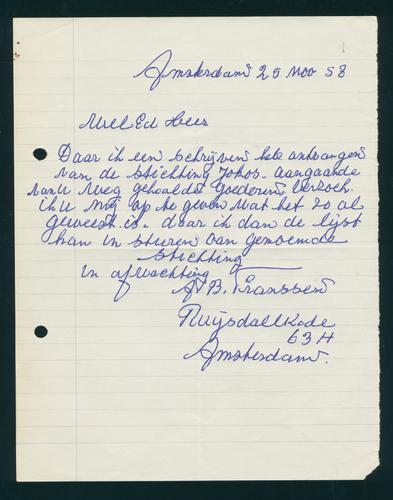 Amsterdam 25 Nov 58
Wel Ed Heer
Daar ik een schrijven heb ontvangen
van de stichting Jokos aangaande
van u weg gehaalde goederen. Verzoek
ik u mij op te geven wat het zo al
geweest is. daar ik dan de lijst
kan in sturen van genoemde
stichting
in afwachting
B. Franssen
Ruijsdallkade
63 H
Amsterdam.